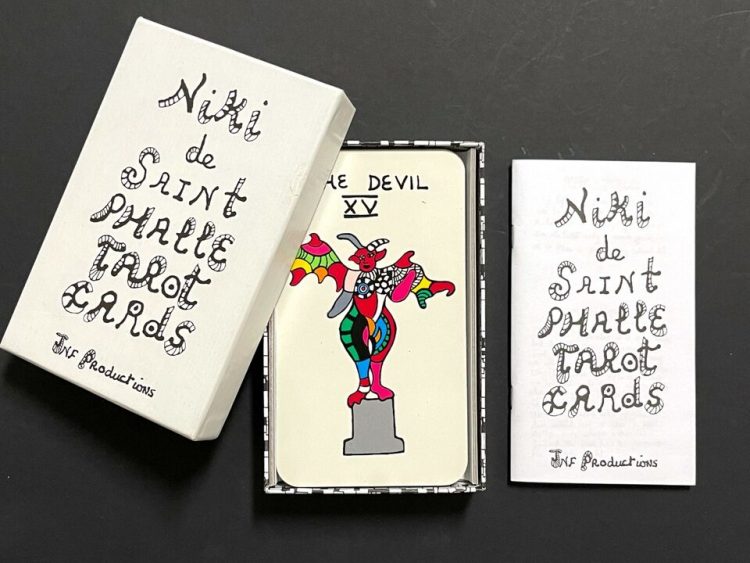 Niki
de
SAINT
PHALLE
TAROT
CARdS
JNF PRODUCTIONS
HE DEVIL
XV
Niki
de
SAINT
PHALLE
TAROT
CARdS
JNF PRODUCTIONS